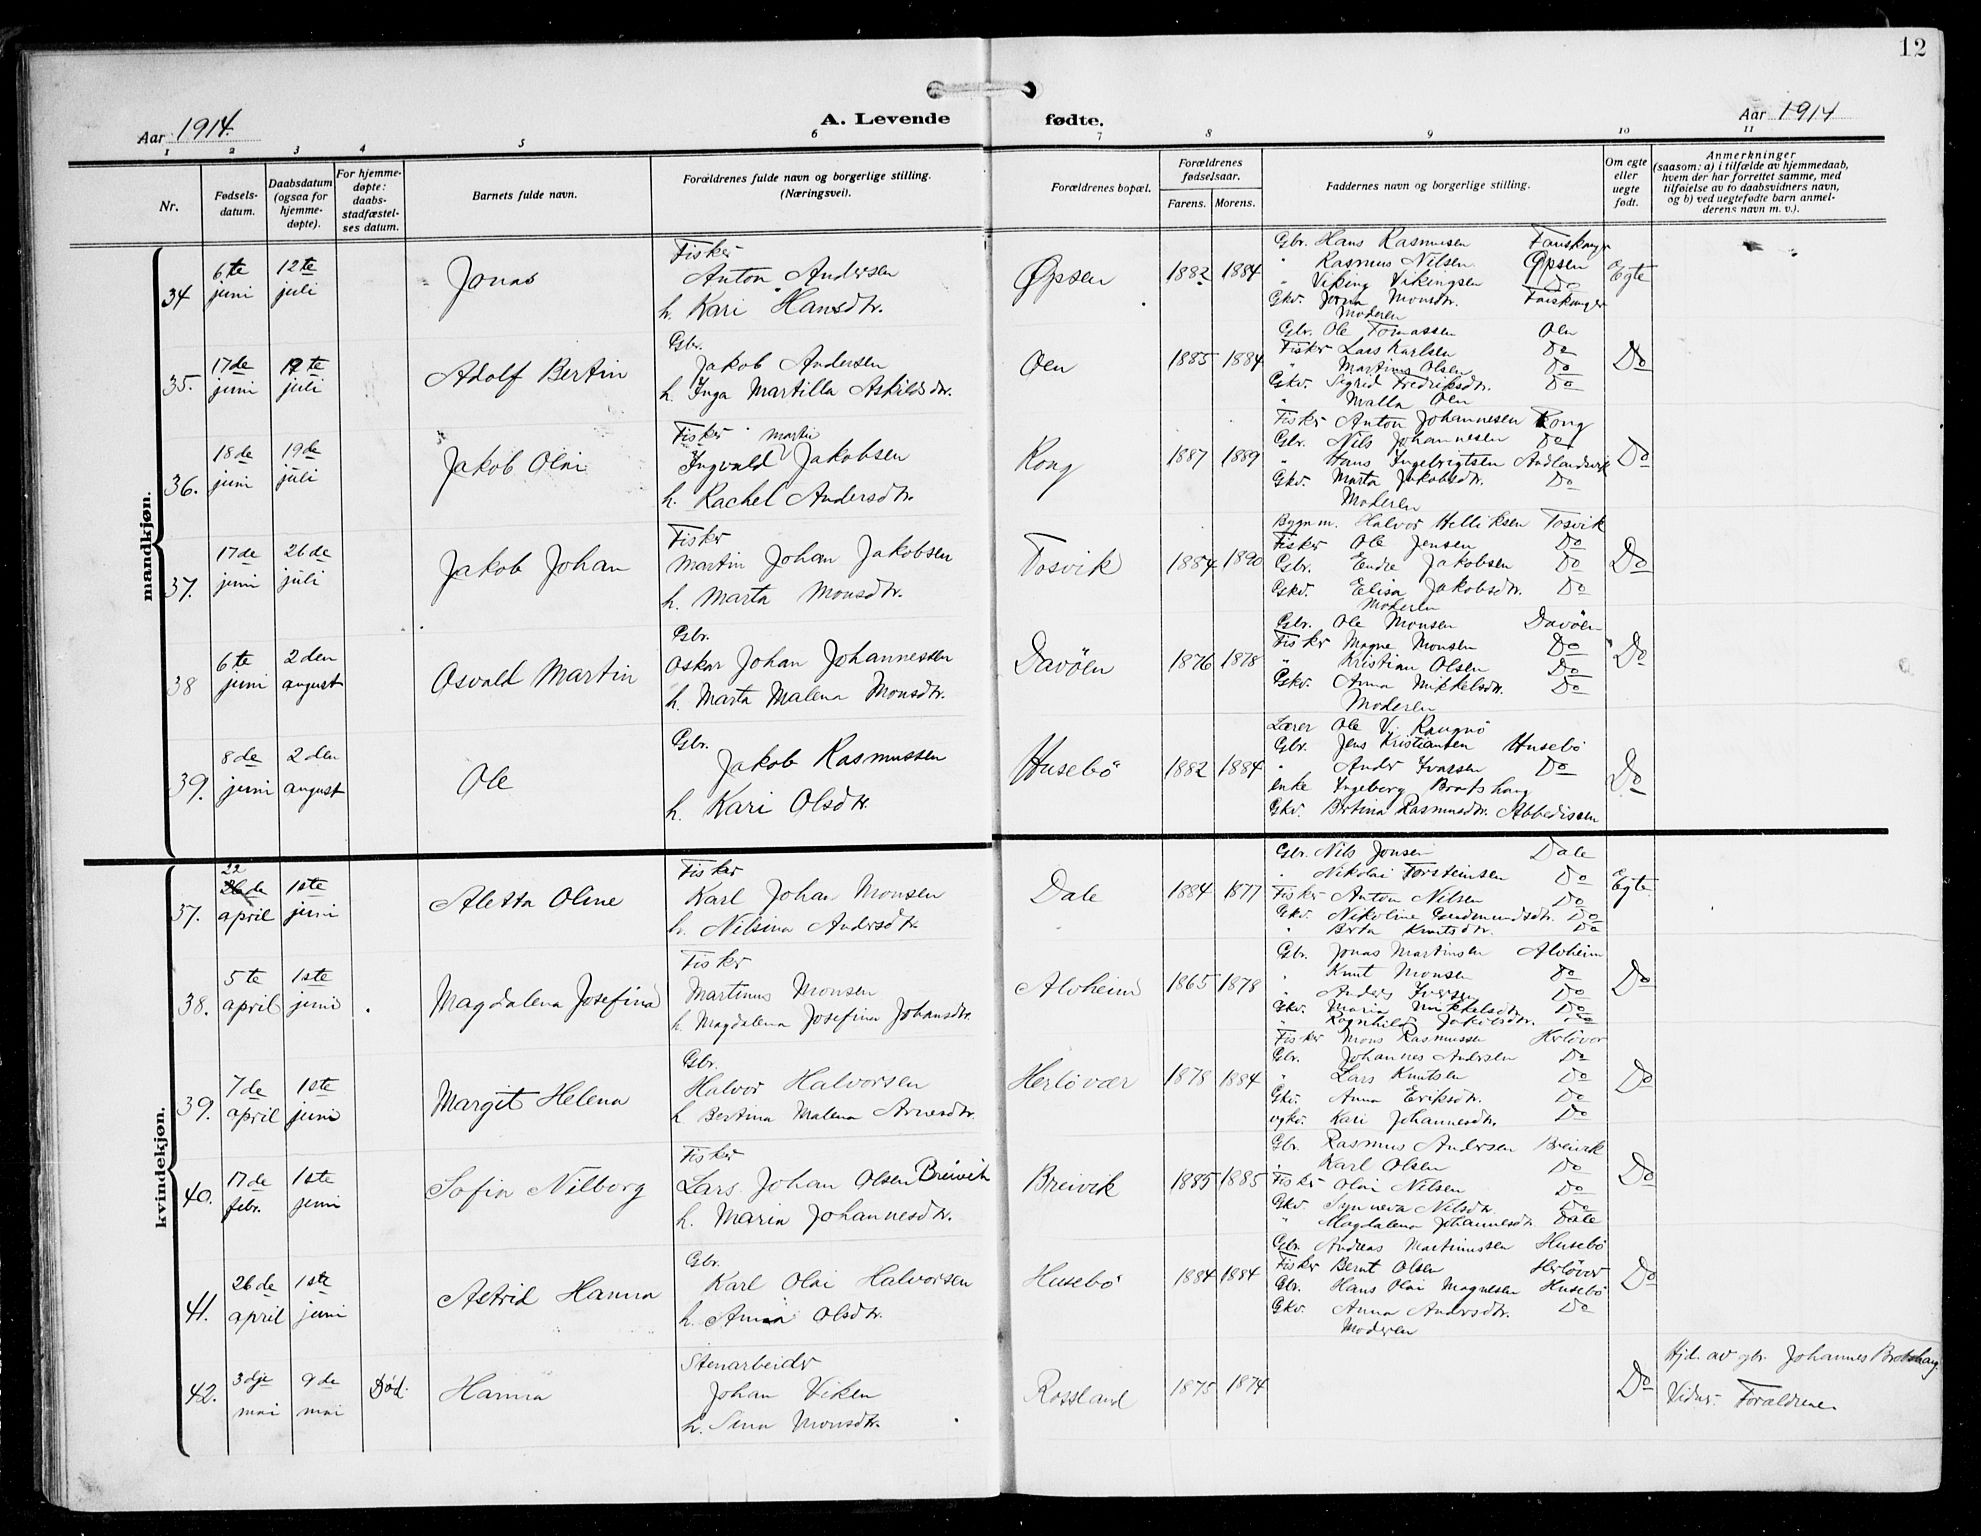 12
Aar 1914.
A. Levende fødte.
Aar 1914
1 2 3 4 5 6 7 8 9 10 11
Nr.
Fødsels-
datum.
Daabsdatum
(ogsaa for
hjemme-
døpte).
For hjemme-
døpte:
daabs-
stadfæstel-
ses datum.
Barnets fulde navn.
Forældrenes fulde navn og borgerlige stilling.
(Næringsvei).
Forældrenes bopæl.
Forældrenes
fødselsaar.
Farens. Morens.
Faddernes navn og borgerlige stilling.
Om egte
eller
uegte
født.
Anmerkninger
(saasom: a) i tilfælde av hjemmedaab,
hvem der har forrettet samme, med
tilføielse av to daabsvidners navn,
og b) ved uegtefødte barn anmel-
derens navn m. v.).
mandkjøn.
34
6te juni
12te juli
Jonas
Fisker
Anton Andersen
h. Kari Hansdtr.
Øpsen
1882 1884
Gbr. Hans Rasmusen
" Rasmus Nilsen Øpsen
" Viking Vikingsen Do
Gkv. Monsdtr.
Moderen
Egte
35.
17de juni
12te juli
Adolf Bertin
Gbr.
Jakob Andersen
h. Inga Martilla Askildsdtr.
Oen
1885 1884
Gbr. Ole Tomassen Oen
Fisker Lars Karlsen Do
" Martinus Olsen Do
Gkv. Sigrid Fredriksdtr. Do
" Malla Oen
Do
36.
18de juni
19de juli
Jakob Olai
Fisker Martin
Ingvald Jakobsen
h. Rachel Andersdtr.
Rong
1887 1889
Fisker Anton Johannesen Rong
Gbr. Nils Johannesen Do
" Hans Ingebrigtsen
Gkv. Marta Jakobsdtr. Do
Moderen
Do
37.
17de juni
26de juli
Jakob Johan
Fisker
Martin Johan Jakobsen
h. Marta Monsdtr.
Tosvik
1884 1890
Bygn m. Halvor Helliksen Tosvik
Fisker Ole Jensen Do
Gbr. Endre Jakobsen Do
Gkv. Elisa Jakobsdtr. Do
Moderen
Do
38
6te juni
2den august
Osvald Martin
Gbr.
Oskar Johan Johannessen
h. Marta Malena Monsdtr.
Davøen
1876 1878
Gbr. Ole Monsen Davøen
Fisker Magne Monsen Do
" Kristian Olsen Do
Gkv. Anna Mikkelsdtr. Do
Moderen
Do
39.
8de juni
2den august
Ole
Gbr.
Jakob Rasmussen
h. Kari Olsdtr.
Husebö
1882 1884
Lærer Ole Vj.
Gbr. Jens Kristiansen Husebö
" Ander Ivarsen Do
enke Ingeborg Bratshaug
Gkv. Bertina Rasmusdtr. Abbedissen
Do
kvindekjøn.
37.
22 april
1ste juni
Aletta Oline
Fisker
Karl Johan Monsen
h. Nilsina Andersdtr.
Dale
1884 1877
Gbr. Nils Jonsen Dale
" Nikolai Torsteinsen Do
Fisker Anton Nilsen Do
Gkv. Nikoline Gudmundsdtr. Do
" Berta Knutsdtr. Do
Egte
38.
5te april
1ste juni
Magdalena Josefina
Fisker
Martinus Monsen
h. Magdalena Josefina Johansdtr.
Alvheim
1865 1878
Gbr. Jonas Martinsen Alvheim
" Knut Monsen Do
" Anders Iversen Do
Gkv. Maria Mikkelsdtr. Do
" Ragnhild Jakobsdtr. Do
Do
39.
7de april
1ste juni
Margit Helena
Gbr.
Halvor Halvorsen
h Bertina Malena Arnesdtr.
Herløvær
1878 1884
Fisker Mons Rasmussen Herløver
Gbr. Johannes Andersen Do
" Lars Knutsen Do
Gkv. Anna Eriksdtr. Do
ugkv. Kari Johannesdtr. Do
Do
40.
17de febr.
1ste juni
Sofia Nilborg
Fisker
Lars Johan Olsen Breivik
h. Maria Johannesdtr.
Breivik
1885 1885
Gbr. Rasmus Andersen Breivik
" Karl Olsen Do
Fisker Olai Nilsen Do
Gkv. Synneva Nilsdtr. Do
" Magdalena Johannesdtr. Dale
Do
41.
26de april
1ste juni
Astrid Hanna
Gbr.
Karl Olai Halvorsen
h. Anna Olsdtr.
Husebö
1884 1884
Gbr. Andreas Martinussen Husebö
Fisker Bernt Olsen Herløver
Gbr. Hans Olai Magnesen Husebö
Gkv. Anna Andersdtr. Do
Moderen
Do
42.
3dje mai
9de mai
Död.
Hanna
Stenarbeider
Johan Viken
h. Sina Monsdtr.
Rossland
1875 1874
Do
Hjd. av gbr. Johannes Bratshaug.
Vidner: Forældrene